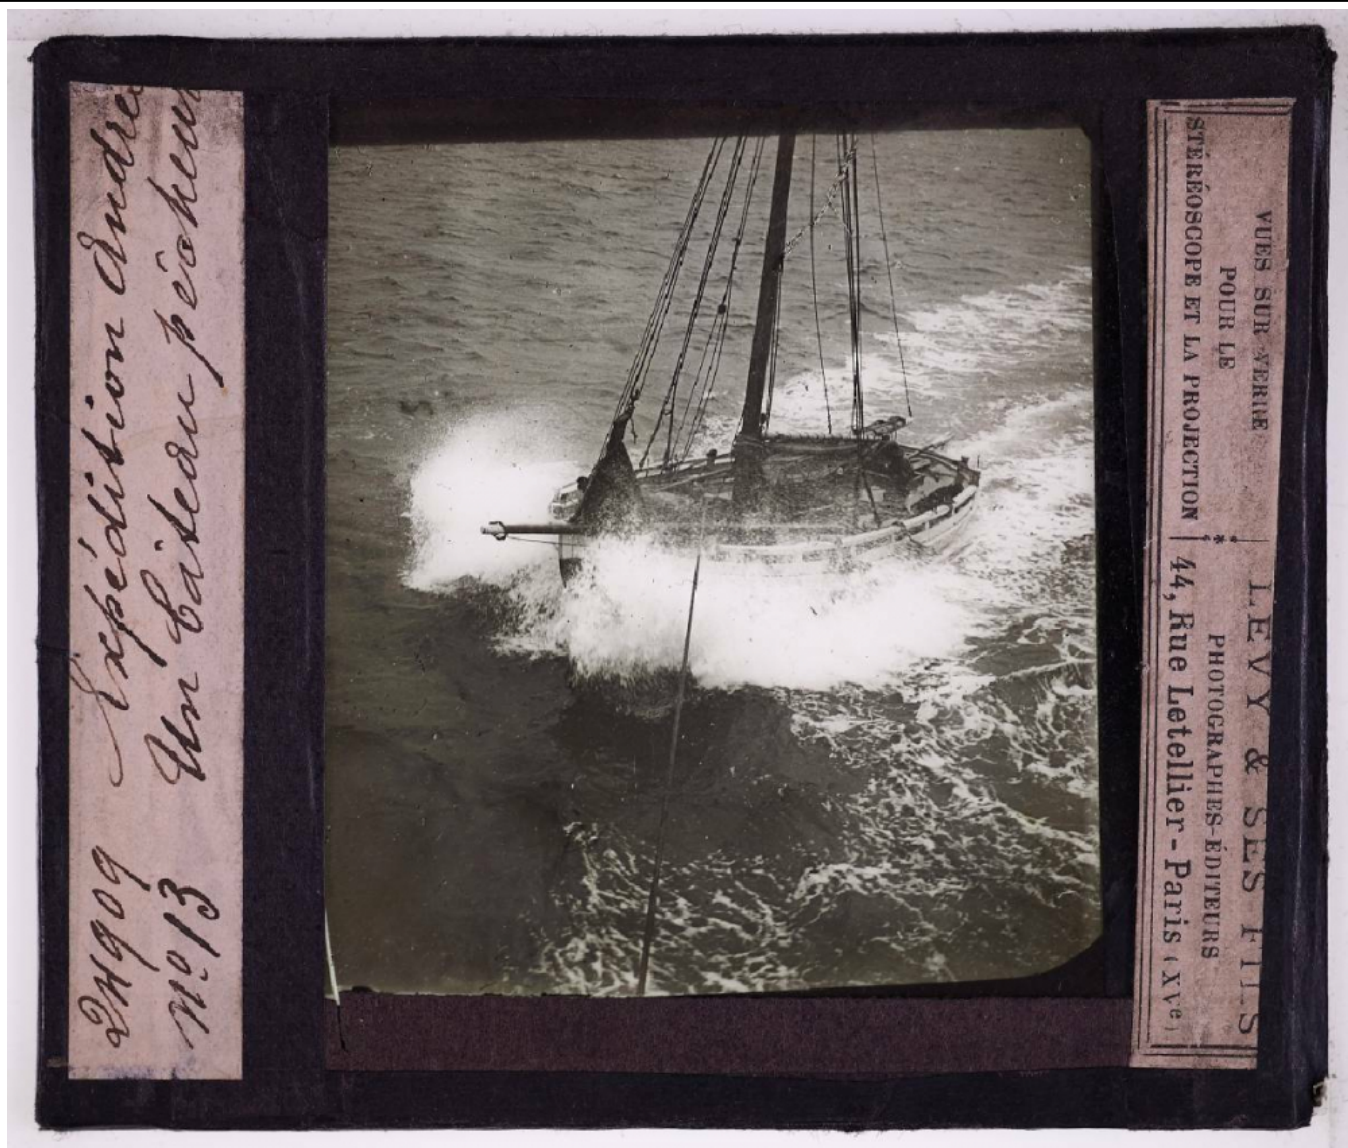 24909 Expédition Andrée
No 13 Un bateau pêcheur
VUES SUR VERRE
POUR LE
STÉRÉOSCOPE ET LA PROJECTION
LEVY & SES FILS
PHOTOGRAPHES-ÉDITEURS
44, Rue Letellier - Paris (XVe)